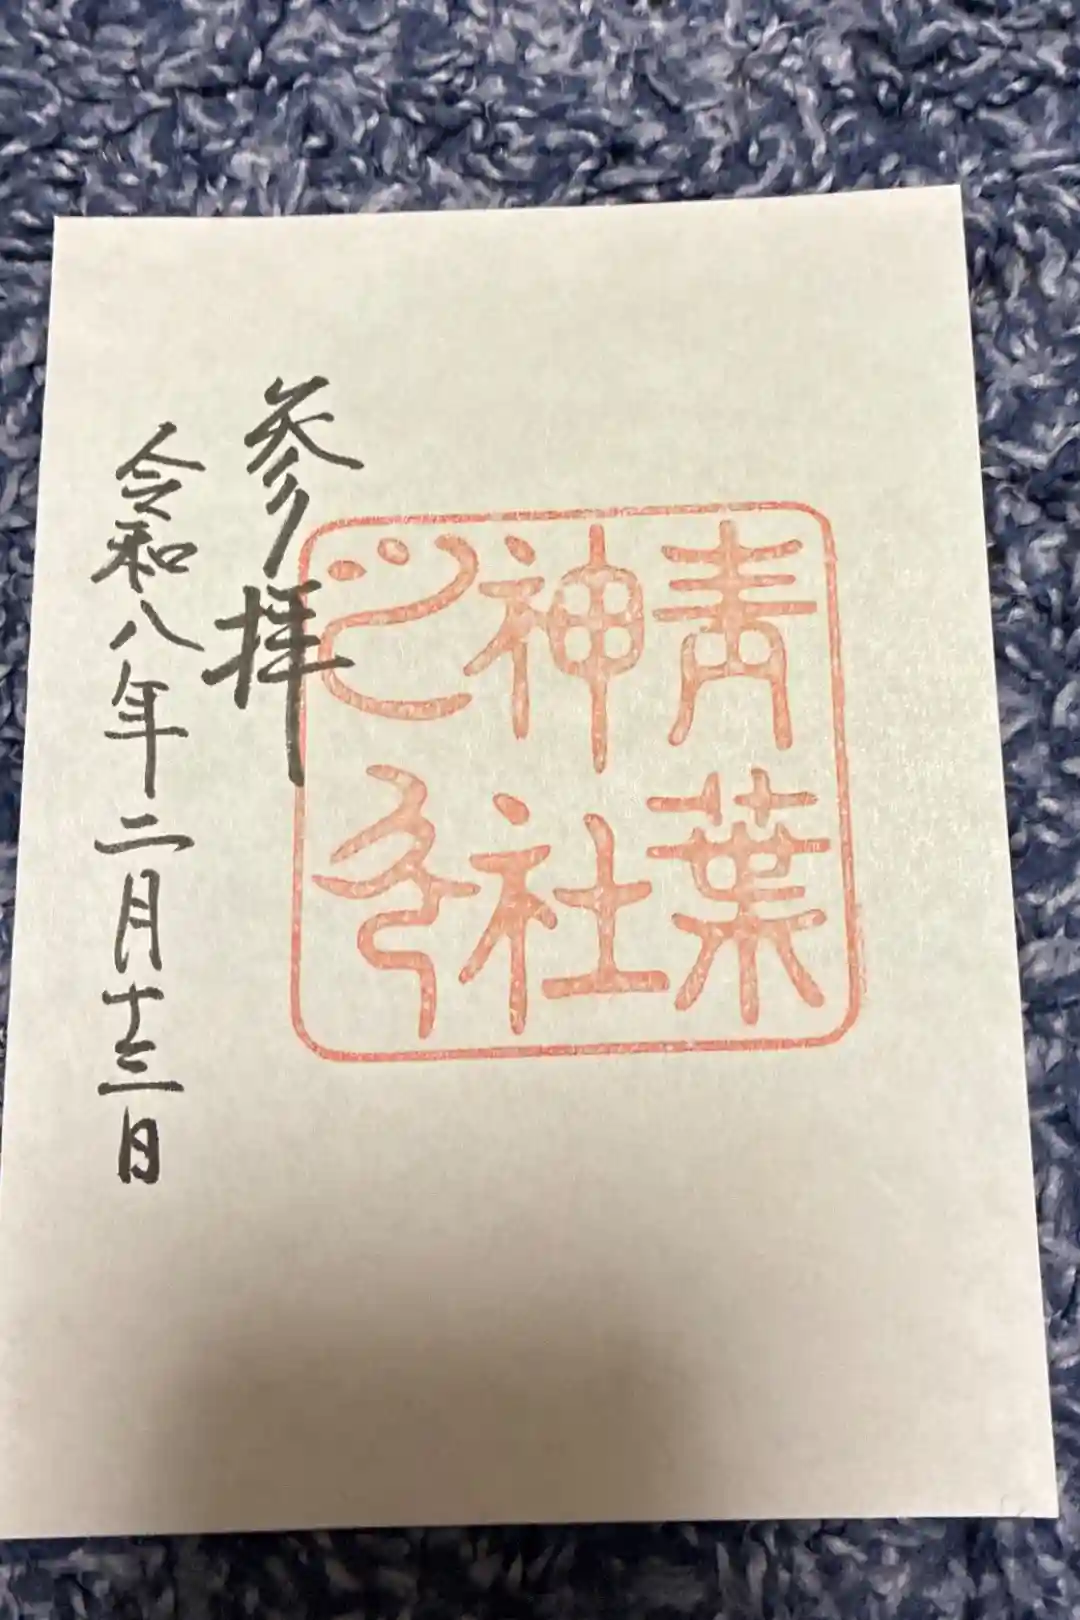 青葉
神社
之印
参拝
令和八年二月十三日